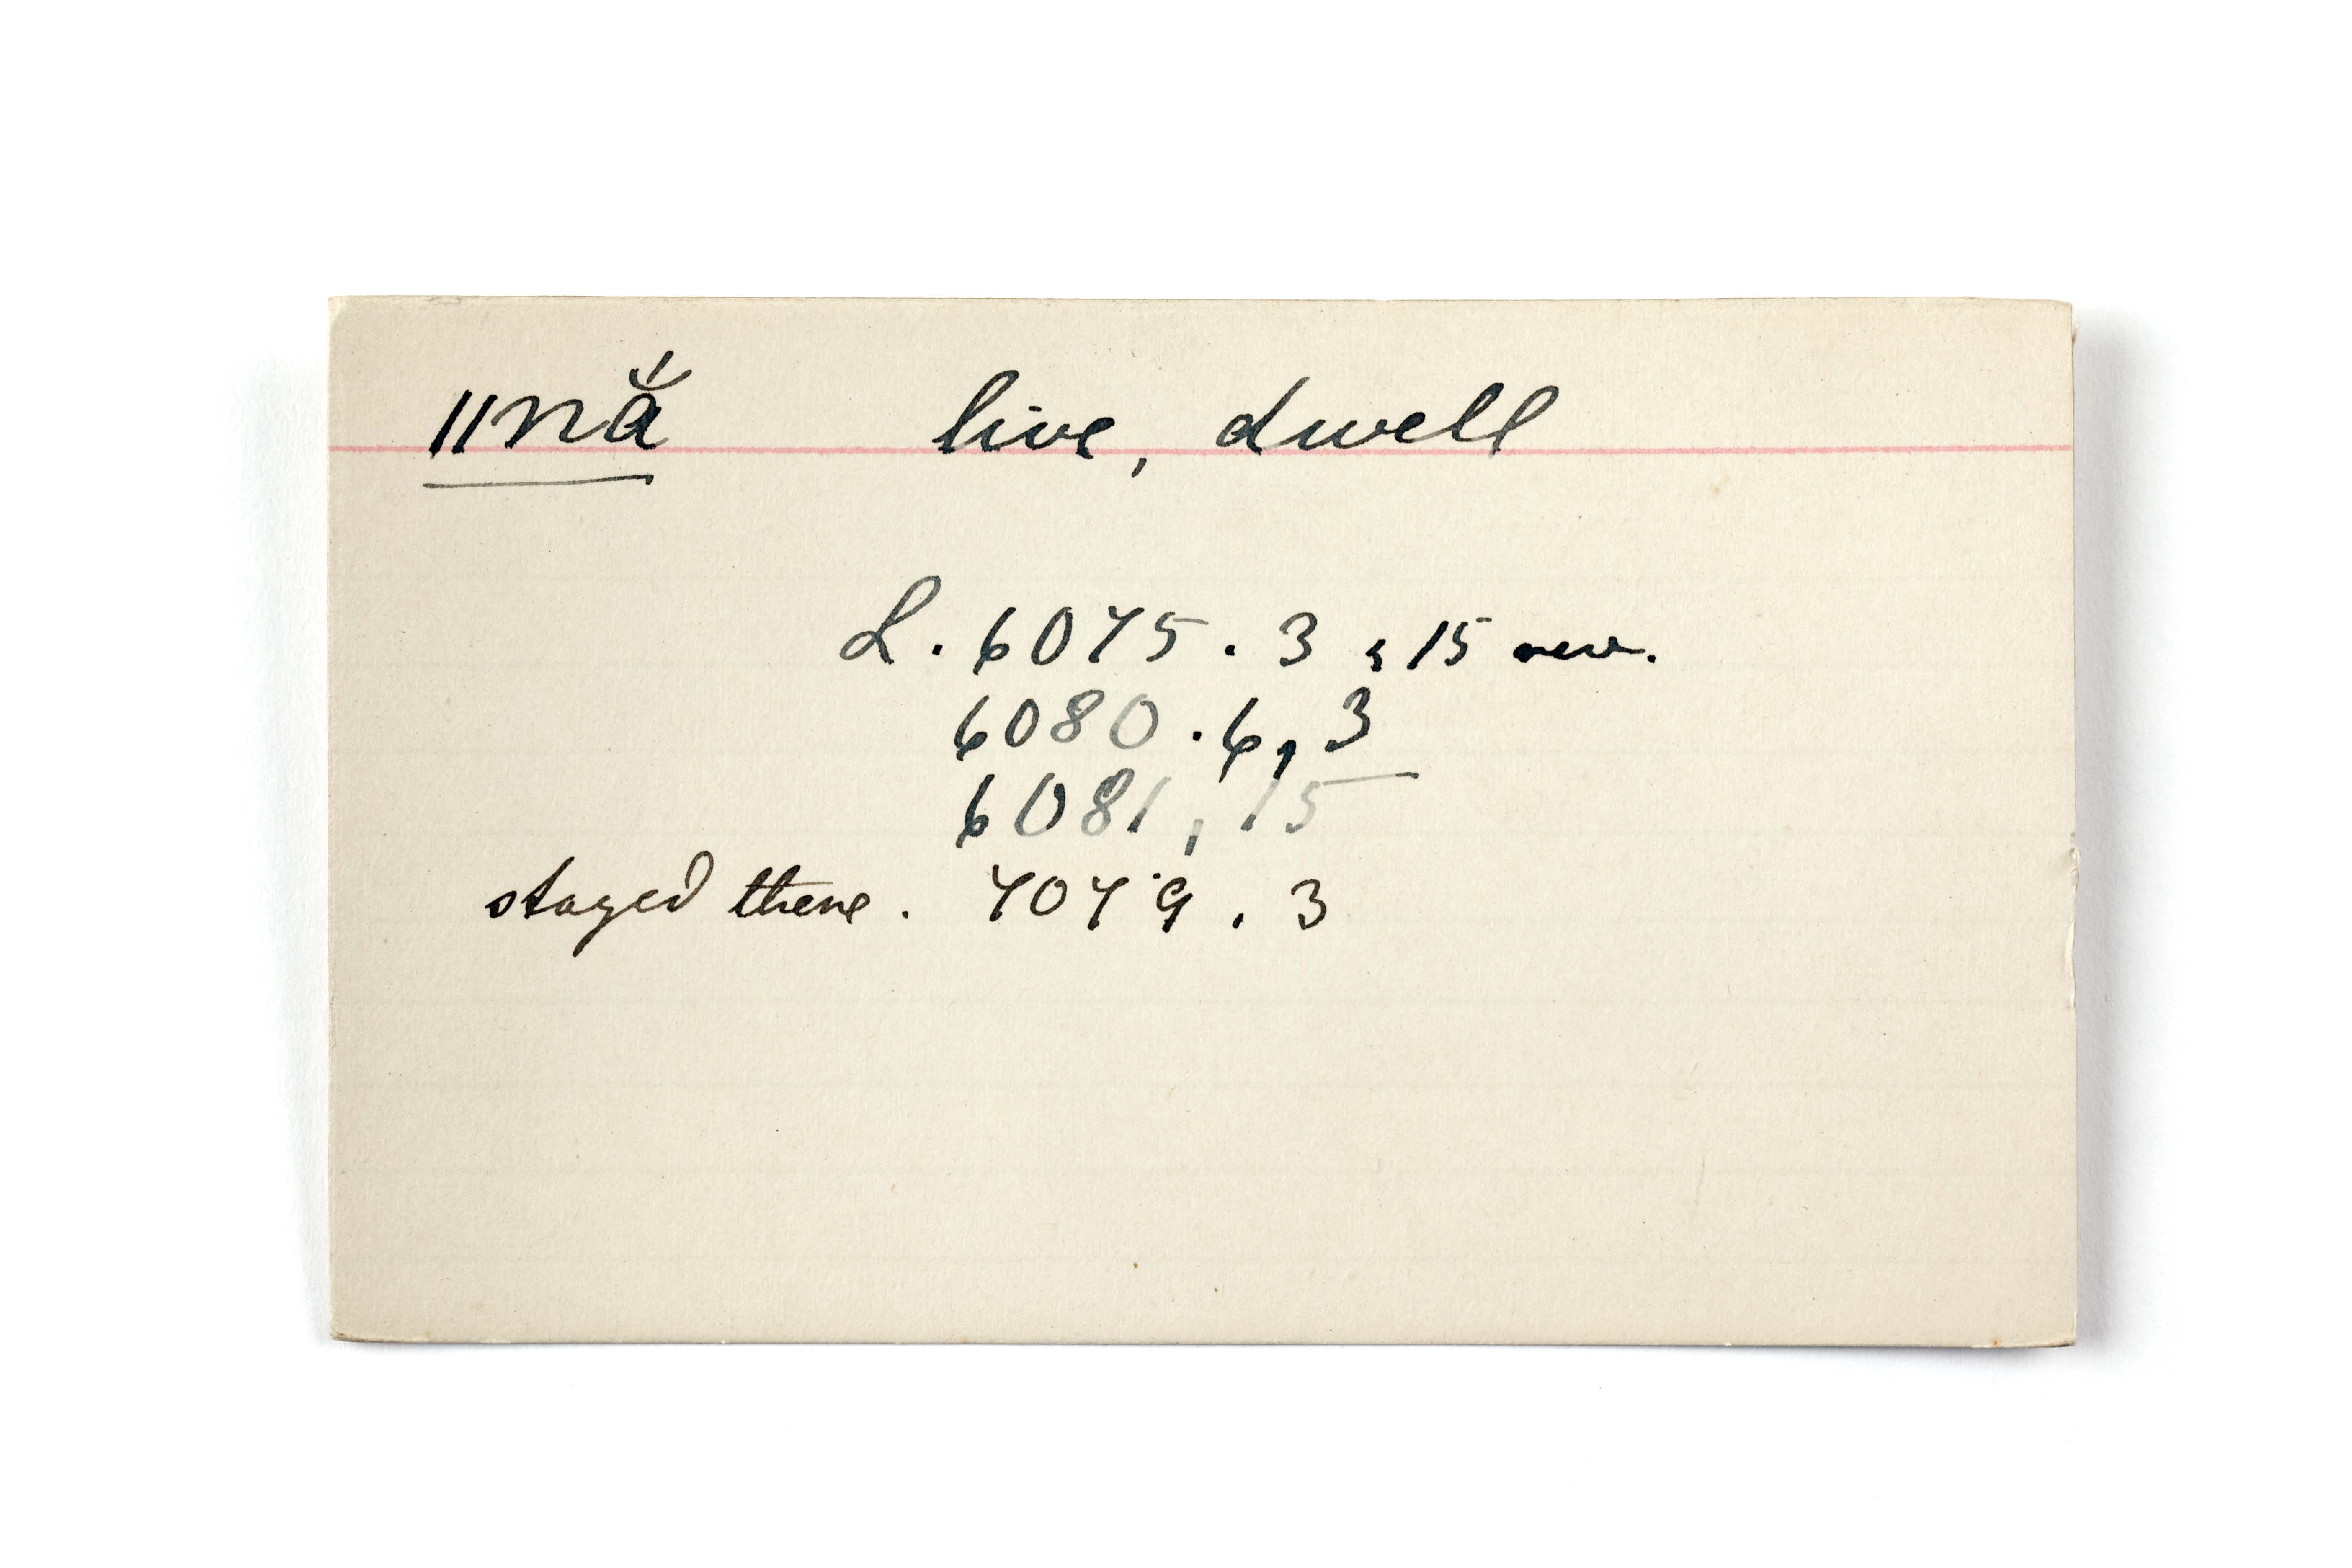 ǁnắ live, dwell
L. 6075. 3, 15 rev.
6080. 6, 3
6081, 15
stayed there. 7079. 3